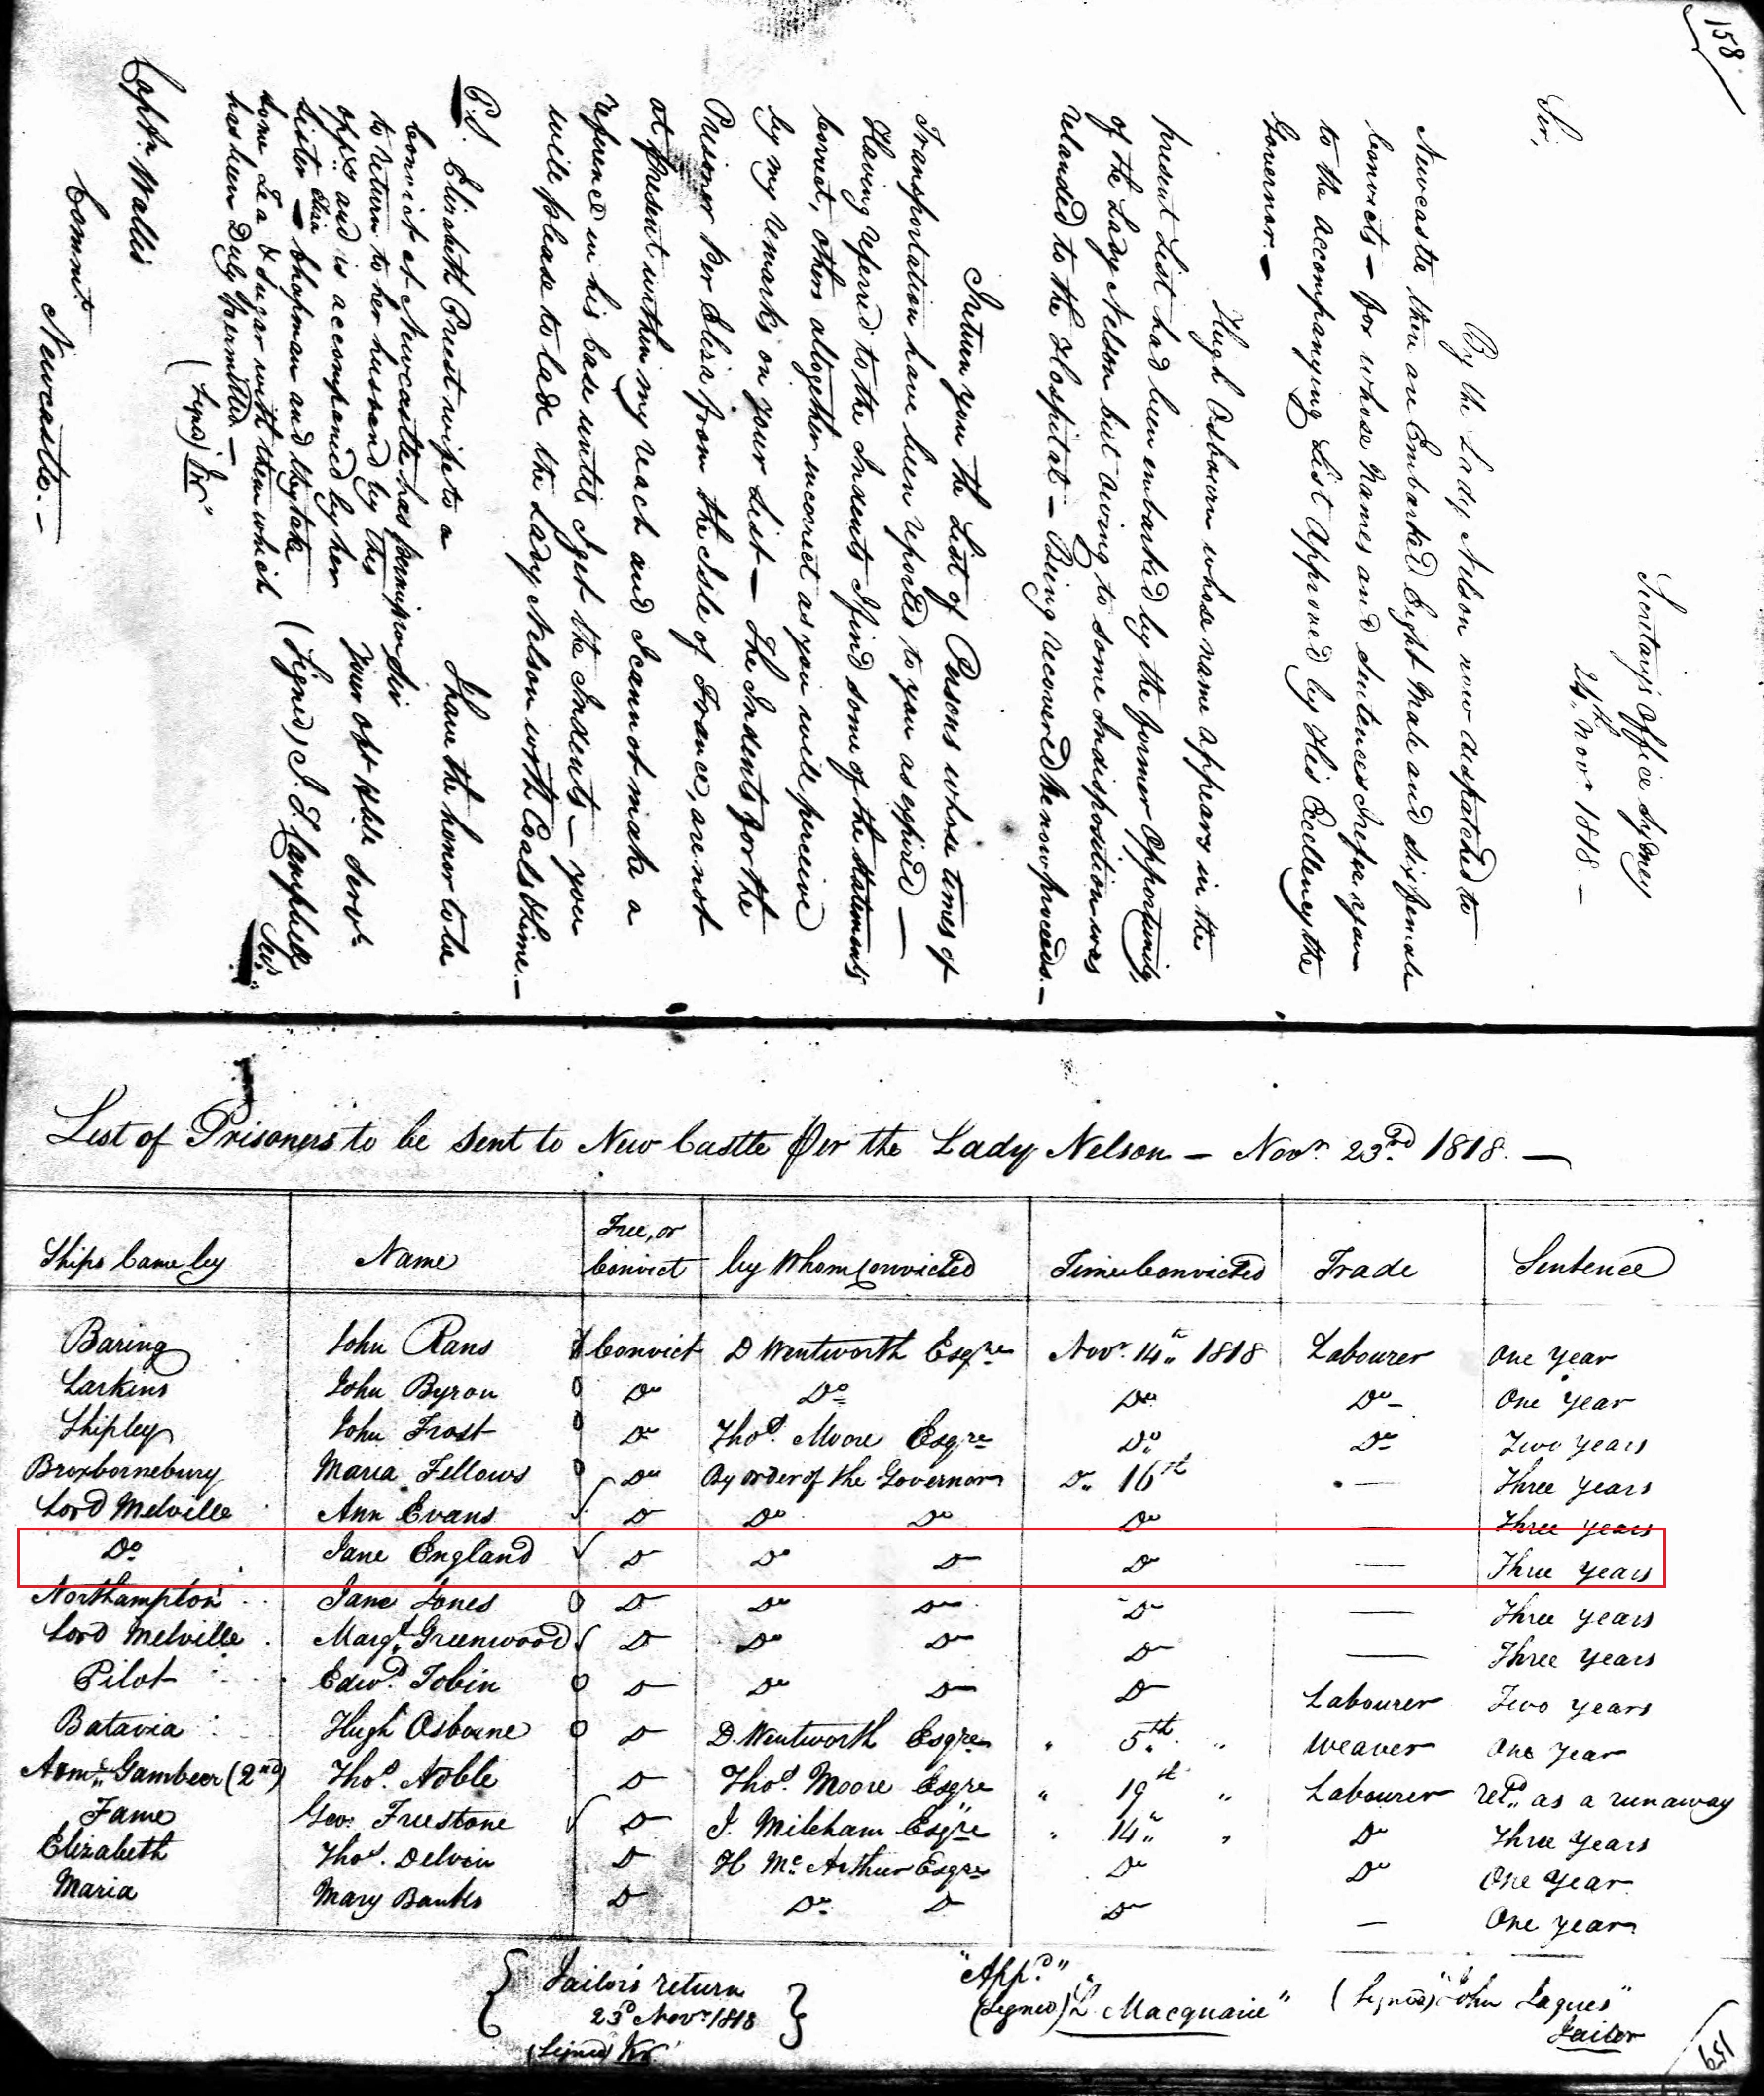 158
Secretary's Office Sydney
24th Novr 1818. —
Sir,
By the Lady Nelson now dispatched to
Newcastle there are Embarked Eight Male and six female
Convicts — for whose Names and Sentences I refer you
to the accompanying List approved by His Excellency the
Governor. —
Hugh Osbourn whose name appears in the
present List had been embarked by the former opportunity
of the Lady Nelson but owing to some Indisposition was
relanded to the Hospital — Being recovered he now proceeds. —
I return you the List of Persons whose times of
Transportation have been reported to you as expired —
Having referred to the Indents I find some of the statements
correct, others altogether incorrect as you will perceive
by my remarks on your List — The Indents for the
Prisoner Per Eliza from the Isle of France, are not
at present within my reach and I cannot make a
reference in his Case until I get the Indents — you
will please to lade the Lady Nelson with Coals & lime. —
I have the honor to be
Sir
Your obt Hble Servt
(Signed) J. T. Campbell
Secy
P.S. Elizabeth Priest wife to a
Convict at Newcastle has permission
to return to her husband by this
oppy and is accompanied by her
sister Eliza Chapman and they take
some Tea & Sugar with them which
has been Duly permitted. —
(Signed)
Captn Wallis
Commt
Newcastle. —
List of Prisoners to be sent to New Castle Per the Lady Nelson — Novr 23rd 1818. —
Ships Came by Name Free, or Convict by Whom Convicted Time Convicted Trade Sentence
Baring John Rans Convict D Wentworth Esqre Novr 14th 1818 Labourer One Year
Larkins John Byron Do Do Do Do One Year
Shipley John Frost Do Thos Moore Esqre Do Do Two Years
Broxbornebury Maria Fellows Do By order of the Governor Do 16th — Three Years
Lord Melville Ann Evans Do Do Do Do — Three Years
Do Jane England Do Do Do Do — Three Years
Northampton Jane Jones Do Do Do Do — Three Years
Lord Melville Margt Greenwood Do Do Do Do — Three Years
Pilot Edwd Tobin Do Do Do Do Labourer Two Years
Batavia Hugh Osborne Do D. Wentworth Esqre " 5th " Weaver One Year
Adml Gambeer (2nd) Thos Noble Do Thos Moore Esqre " 19th " Labourer retd as a runaway
Fame Geo. Freestone Do J. Mileham Esqre " 14th " Do Three Years
Elizabeth Thos. Delvin Do H McArthur Esqre Do Do One Year
Maria Mary Banks Do Do Do Do — One Year
Jailor's return
23d Novr 1818
(Signed)
"Appd"
(Signed) L. Macquarie"
(Signed) "John Jaques"
Jailor
159